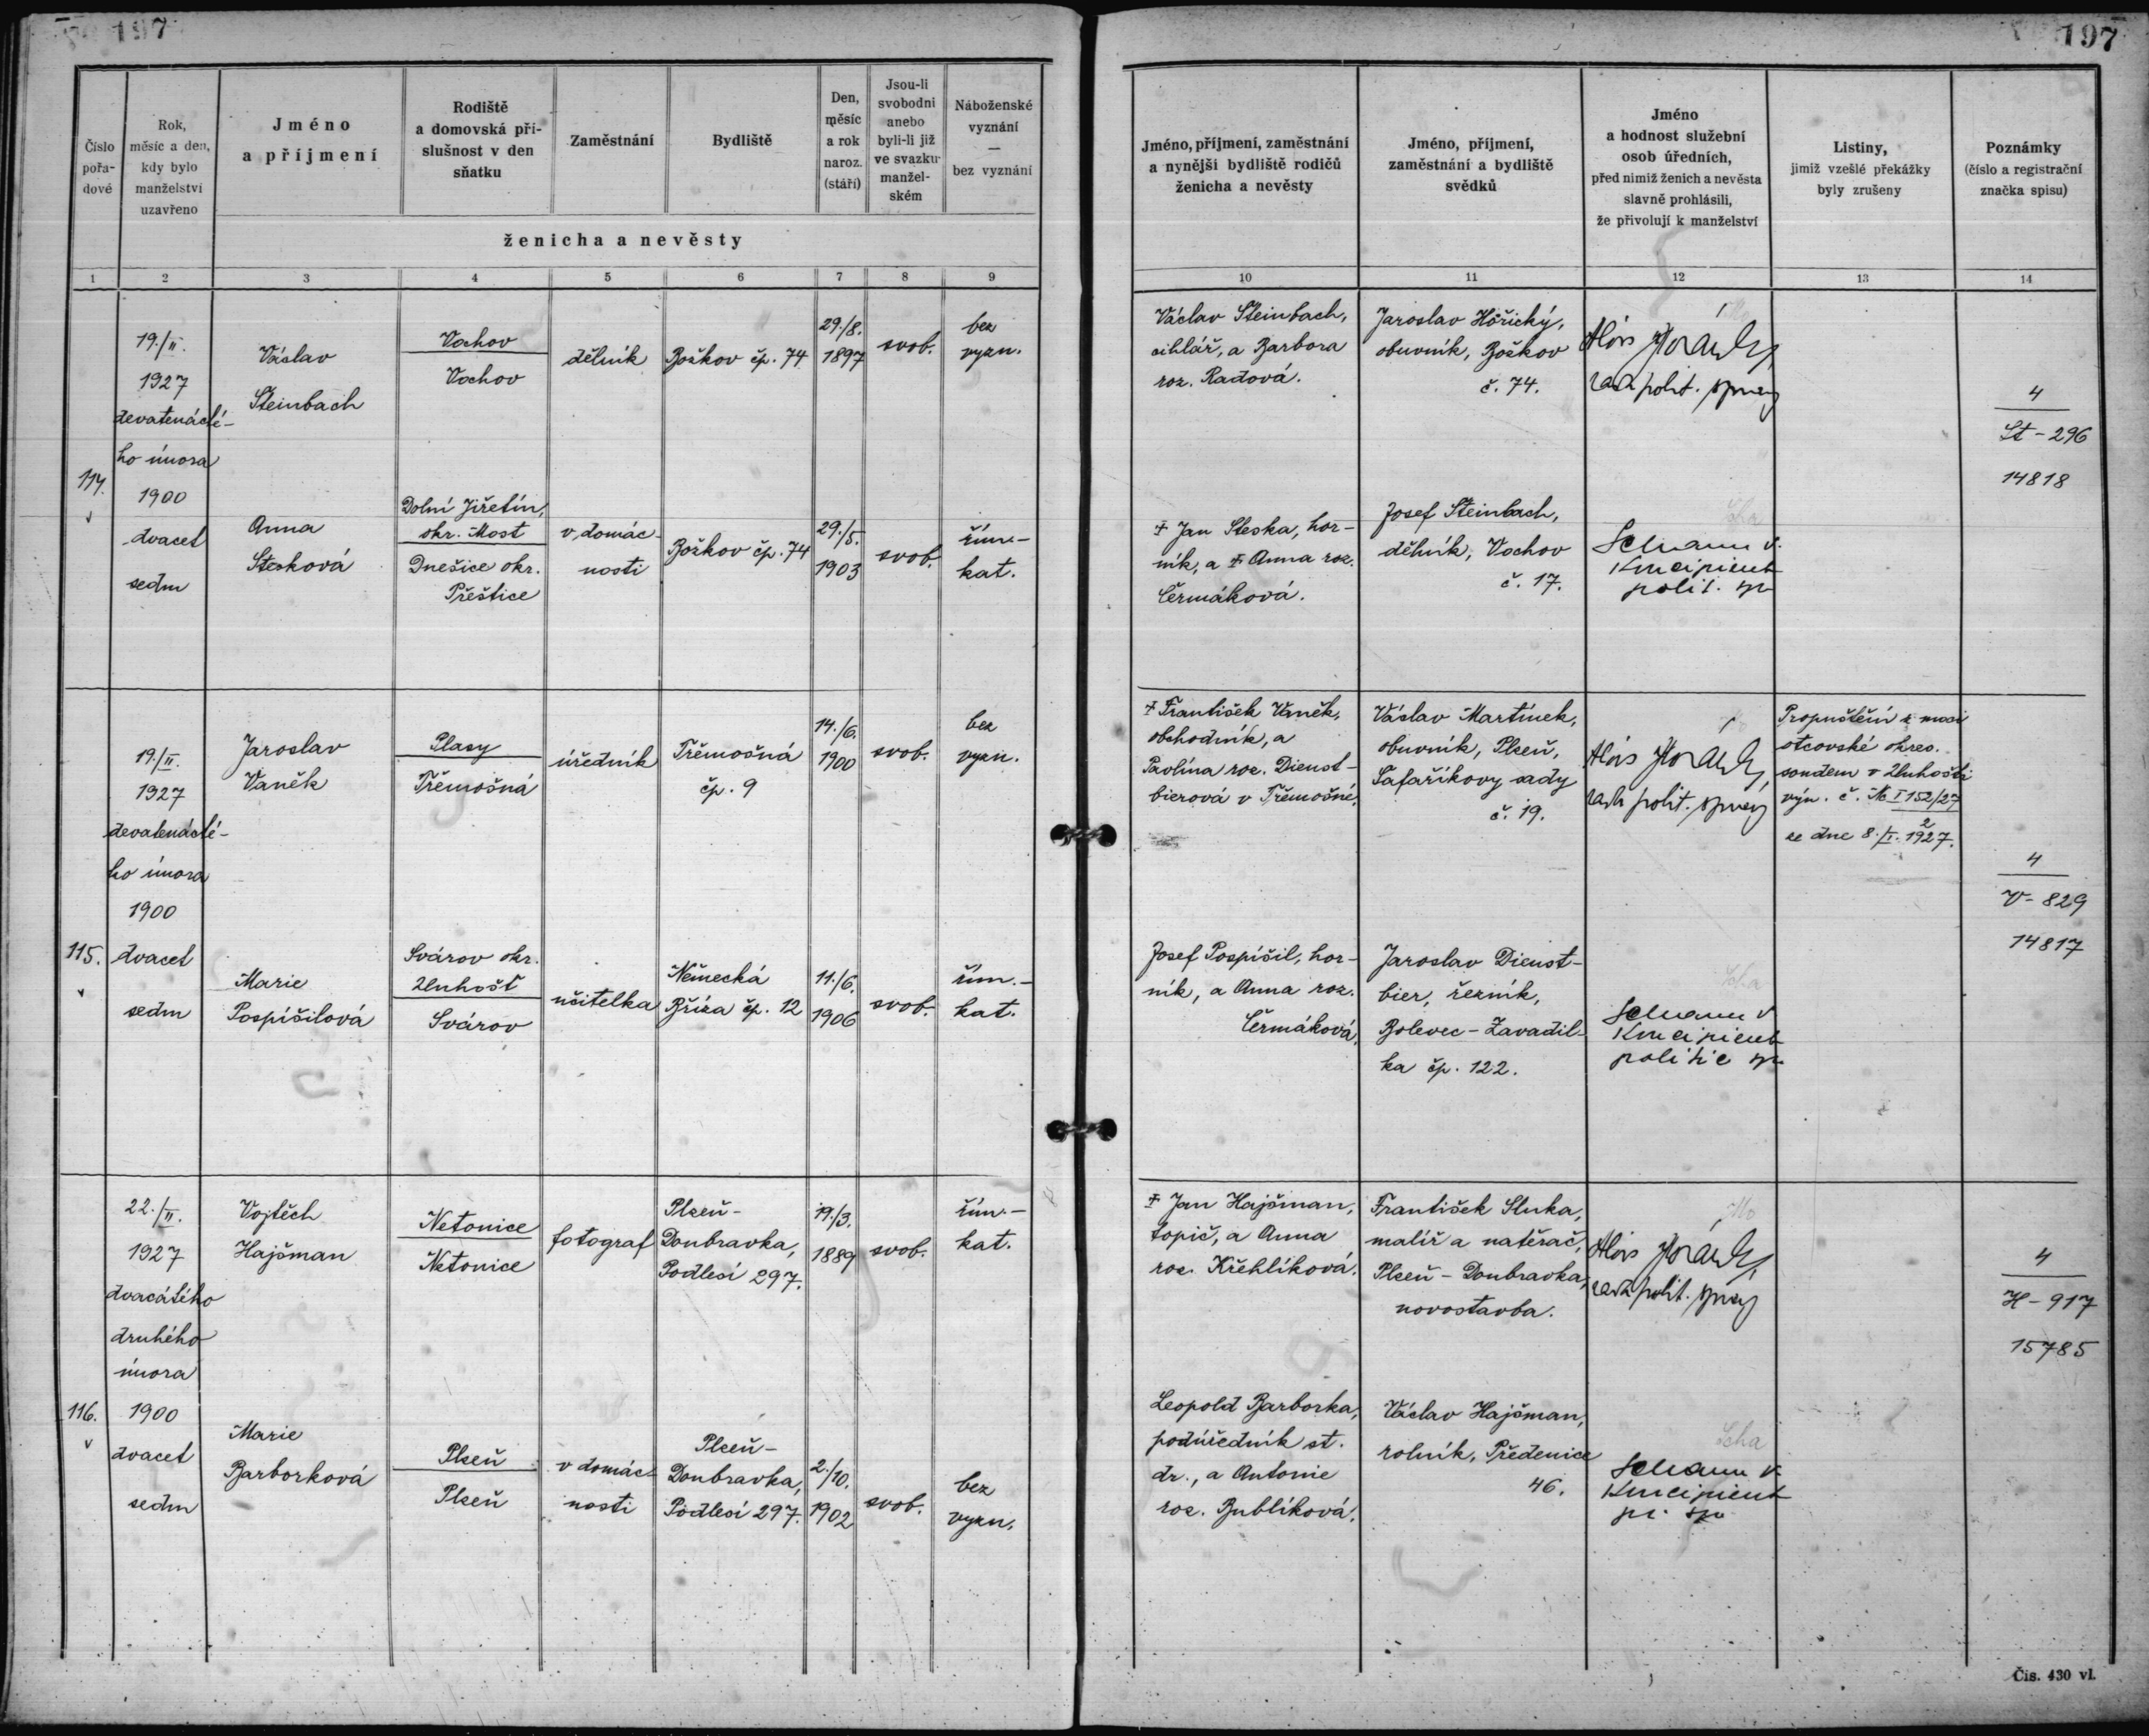 197
197
Číslo pořadové
Rok, měsíc a den, kdy bylo manželství uzavřeno
Jméno a příjmení
Rodiště a domovská příslušnost v den sňatku
Zaměstnání
Bydliště
Den, měsíc a rok naroz. (stáří)
Jsou-li svobodni anebo byli-li již ve svazku manželském
Náboženské vyznání — bez vyznání
ženicha a nevěsty
Jméno, příjmení, zaměstnání a nynější bydliště rodičů ženicha a nevěsty
Jméno, příjmení, zaměstnání a bydliště svědků
Jméno a hodnost služební osob úředních, před nimiž ženich a nevěsta slavně prohlásili, že přivolují k manželství
Listiny, jimiž vzešlé překážky byly zrušeny
Poznámky (číslo a registrační značka spisu)
1 2 3 4 5 6 7 8 9 10 11 12 13 14
114.
19./II.
1927
devatenácté-
ho února
1900
dvacet
sedm
Václav
Steinbach
Vochov
Vochov
dělník
Božkov čp. 74
29./8.
1897
svob.
bez
vyzn.
Václav Steinbach,
cihlář, a Barbora
roz. Radová.
Jaroslav Hořický,
obuvník, Božkov
č. 74.
Alois
rada polit. správy
4
St - 296
14818
Anna
Stesková
Dolní Jiřetín,
okr. Most
Dnešice okr.
Přeštice
v domác-
nosti
Božkov čp. 74
29./5.
1903
svob.
řím.-
kat.
‡ Jan Steska, hor-
ník, a ‡ Anna roz.
Čermáková.
Josef Steinbach,
dělník, Vochov
č. 17.
Koncipient
polit. sp.
115.
19./II.
1927
devatenácté-
ho února
1900
dvacet
sedm
Jaroslav
Vaněk
Plasy
Třemošná
úředník
Třemošná
čp. 9
14./6.
1900
svob.
bez
vyzn.
‡ František Vaněk,
obchodník, a
Pavlína roz. Dienst-
bierová v Třemošné.
Václav Martínek,
obuvník, Plzeň,
Šafaříkovy sady
č. 19.
Alois
rada polit. správy
Propuštění z moci
otcovské okres.
soudem v Unhošti
výn. č. Nc I 152/27
2
ze dne 8./I. 1927.
4
V - 829
14817
Marie
Pospíšilová
Svárov okr.
Unhošť
Svárov
učitelka
Německá
Bříza čp. 12
11./6.
1906
svob.
řím.-
kat.
Josef Pospíšil, hor-
ník, a Anna roz.
Čermáková.
Jaroslav Dienst-
bier, řezník,
Bolevec - Zavadil-
ka čp. 122.
Koncipient
politic sp.
116.
22./II.
1927
dvacátého
druhého
února
1900
dvacet
sedm
Vojtěch
Hajšman
Netonice
Netonice
fotograf
Plzeň-
Doubravka,
Podlesí 297.
19./3.
1889
svob.
řím.-
kat.
‡ Jan Hajšman,
topič, a Anna
roz. Křehlíková.
František Sluka,
malíř a natěrač,
Plzeň - Doubravka,
novostavba.
Alois
rada polit. správy
4
H - 917
15785
Marie
Barborková
Plzeň
Plzeň
v domác-
nosti
Plzeň-
Doubravka,
Podlesí 297.
2./10.
1902
svob.
bez
vyzn.
Leopold Barborka,
podúředník st.
dr., a Antonie
roz. Bublíková.
Václav Hajšman,
rolník, Předenice
46.
Koncipient
Čís. 430 vl.